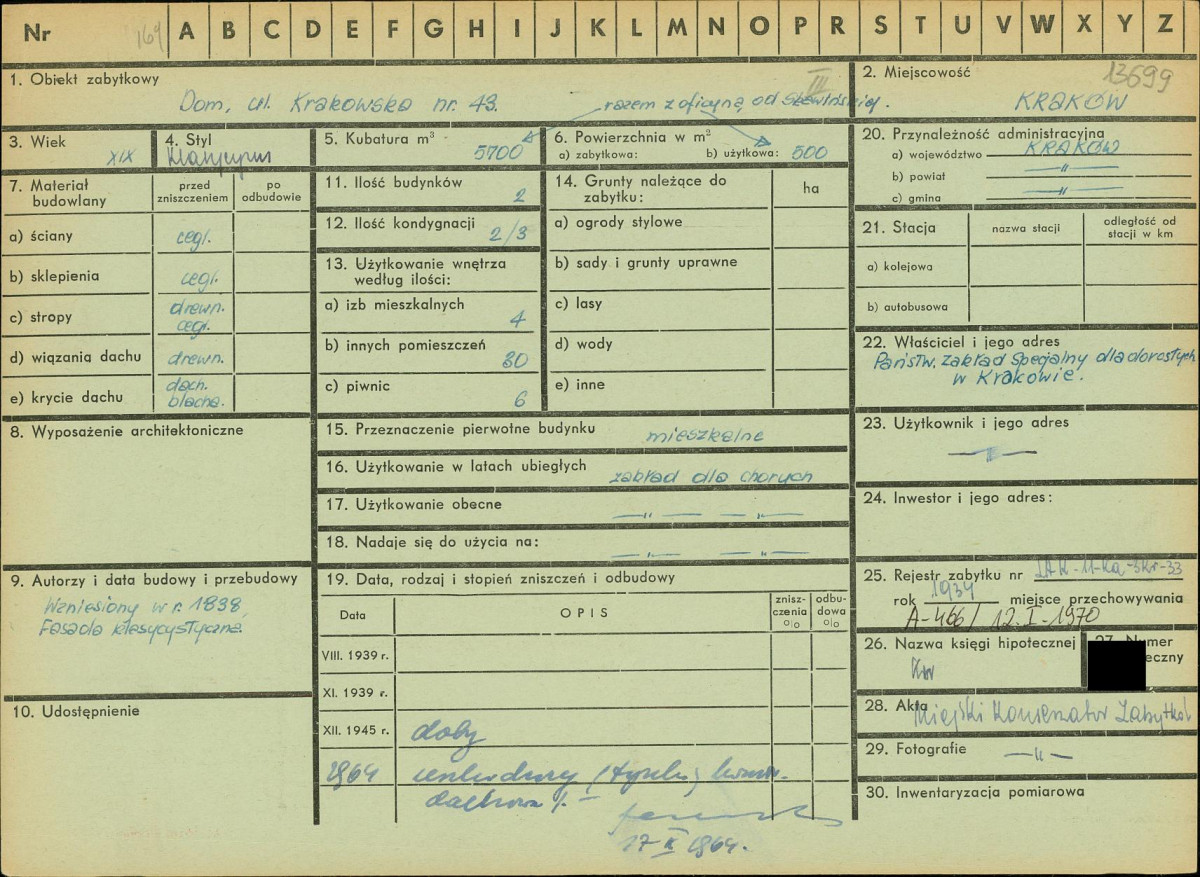 Nr 164 A B C D E F G H I J K L M N O P R S T U V W X Y Z
1. Obiekt zabytkowy
Dom, ul. Krakowska nr. 43. razem z oficyną od
III
2. Miejscowość 13699
KRAKÓW
3. Wiek
XIX
4. Styl
Klasycyzm
5. Kubatura m³
5700
6. Powierzchnia w m²
a) zabytkowa: b) użytkowa: 500
20. Przynależność administracyjna
a) województwo KRAKÓW
b) powiat —"—
c) gmina —"—
7. Materiał budowlany
przed zniszczeniem
po odbudowie
a) ściany cegl.
b) sklepienia cegl.
c) stropy drewn. cegl.
d) wiązania dachu drewn.
e) krycie dachu dach. blacha.
11. Ilość budynków 2
12. Ilość kondygnacji 2/3
13. Użytkowanie wnętrza według ilości:
a) izb mieszkalnych 4
b) innych pomieszczeń 30
c) piwnic 6
14. Grunty należące do zabytku: ha
a) ogrody stylowe
b) sady i grunty uprawne
c) lasy
d) wody
e) inne
21. Stacja
nazwa stacji
odległość od stacji w km
a) kolejowa
b) autobusowa
22. Właściciel i jego adres
Państw. zakład specjalny dla dorosłych
w Krakowie.
8. Wyposażenie architektoniczne
15. Przeznaczenie pierwotne budynku mieszkalne
16. Użytkowanie w latach ubiegłych zakład dla chorych
17. Użytkowanie obecne —"— —"—
18. Nadaje się do użycia na: —"— —"—
23. Użytkownik i jego adres
—"—
24. Inwestor i jego adres:
9. Autorzy i data budowy i przebudowy
Wzniesiony w r. 1838,
Fasada klasycystyczna.
10. Udostępnienie
19. Data, rodzaj i stopień zniszczeń i odbudowy
Data OPIS zniszczenia % odbudowa %
VIII. 1939 r.
XI. 1939 r.
XII. 1945 r. doby
1964
17 X 1964.
25. Rejestr zabytku nr
rok 1934 miejsce przechowywania
A-466/ 12.I-1970
26. Nazwa księgi hipotecznej
27. Numer
eczny
28. Akta
Miejski Konserwator Zabytków
29. Fotografie —"—
30. Inwentaryzacja pomiarowa